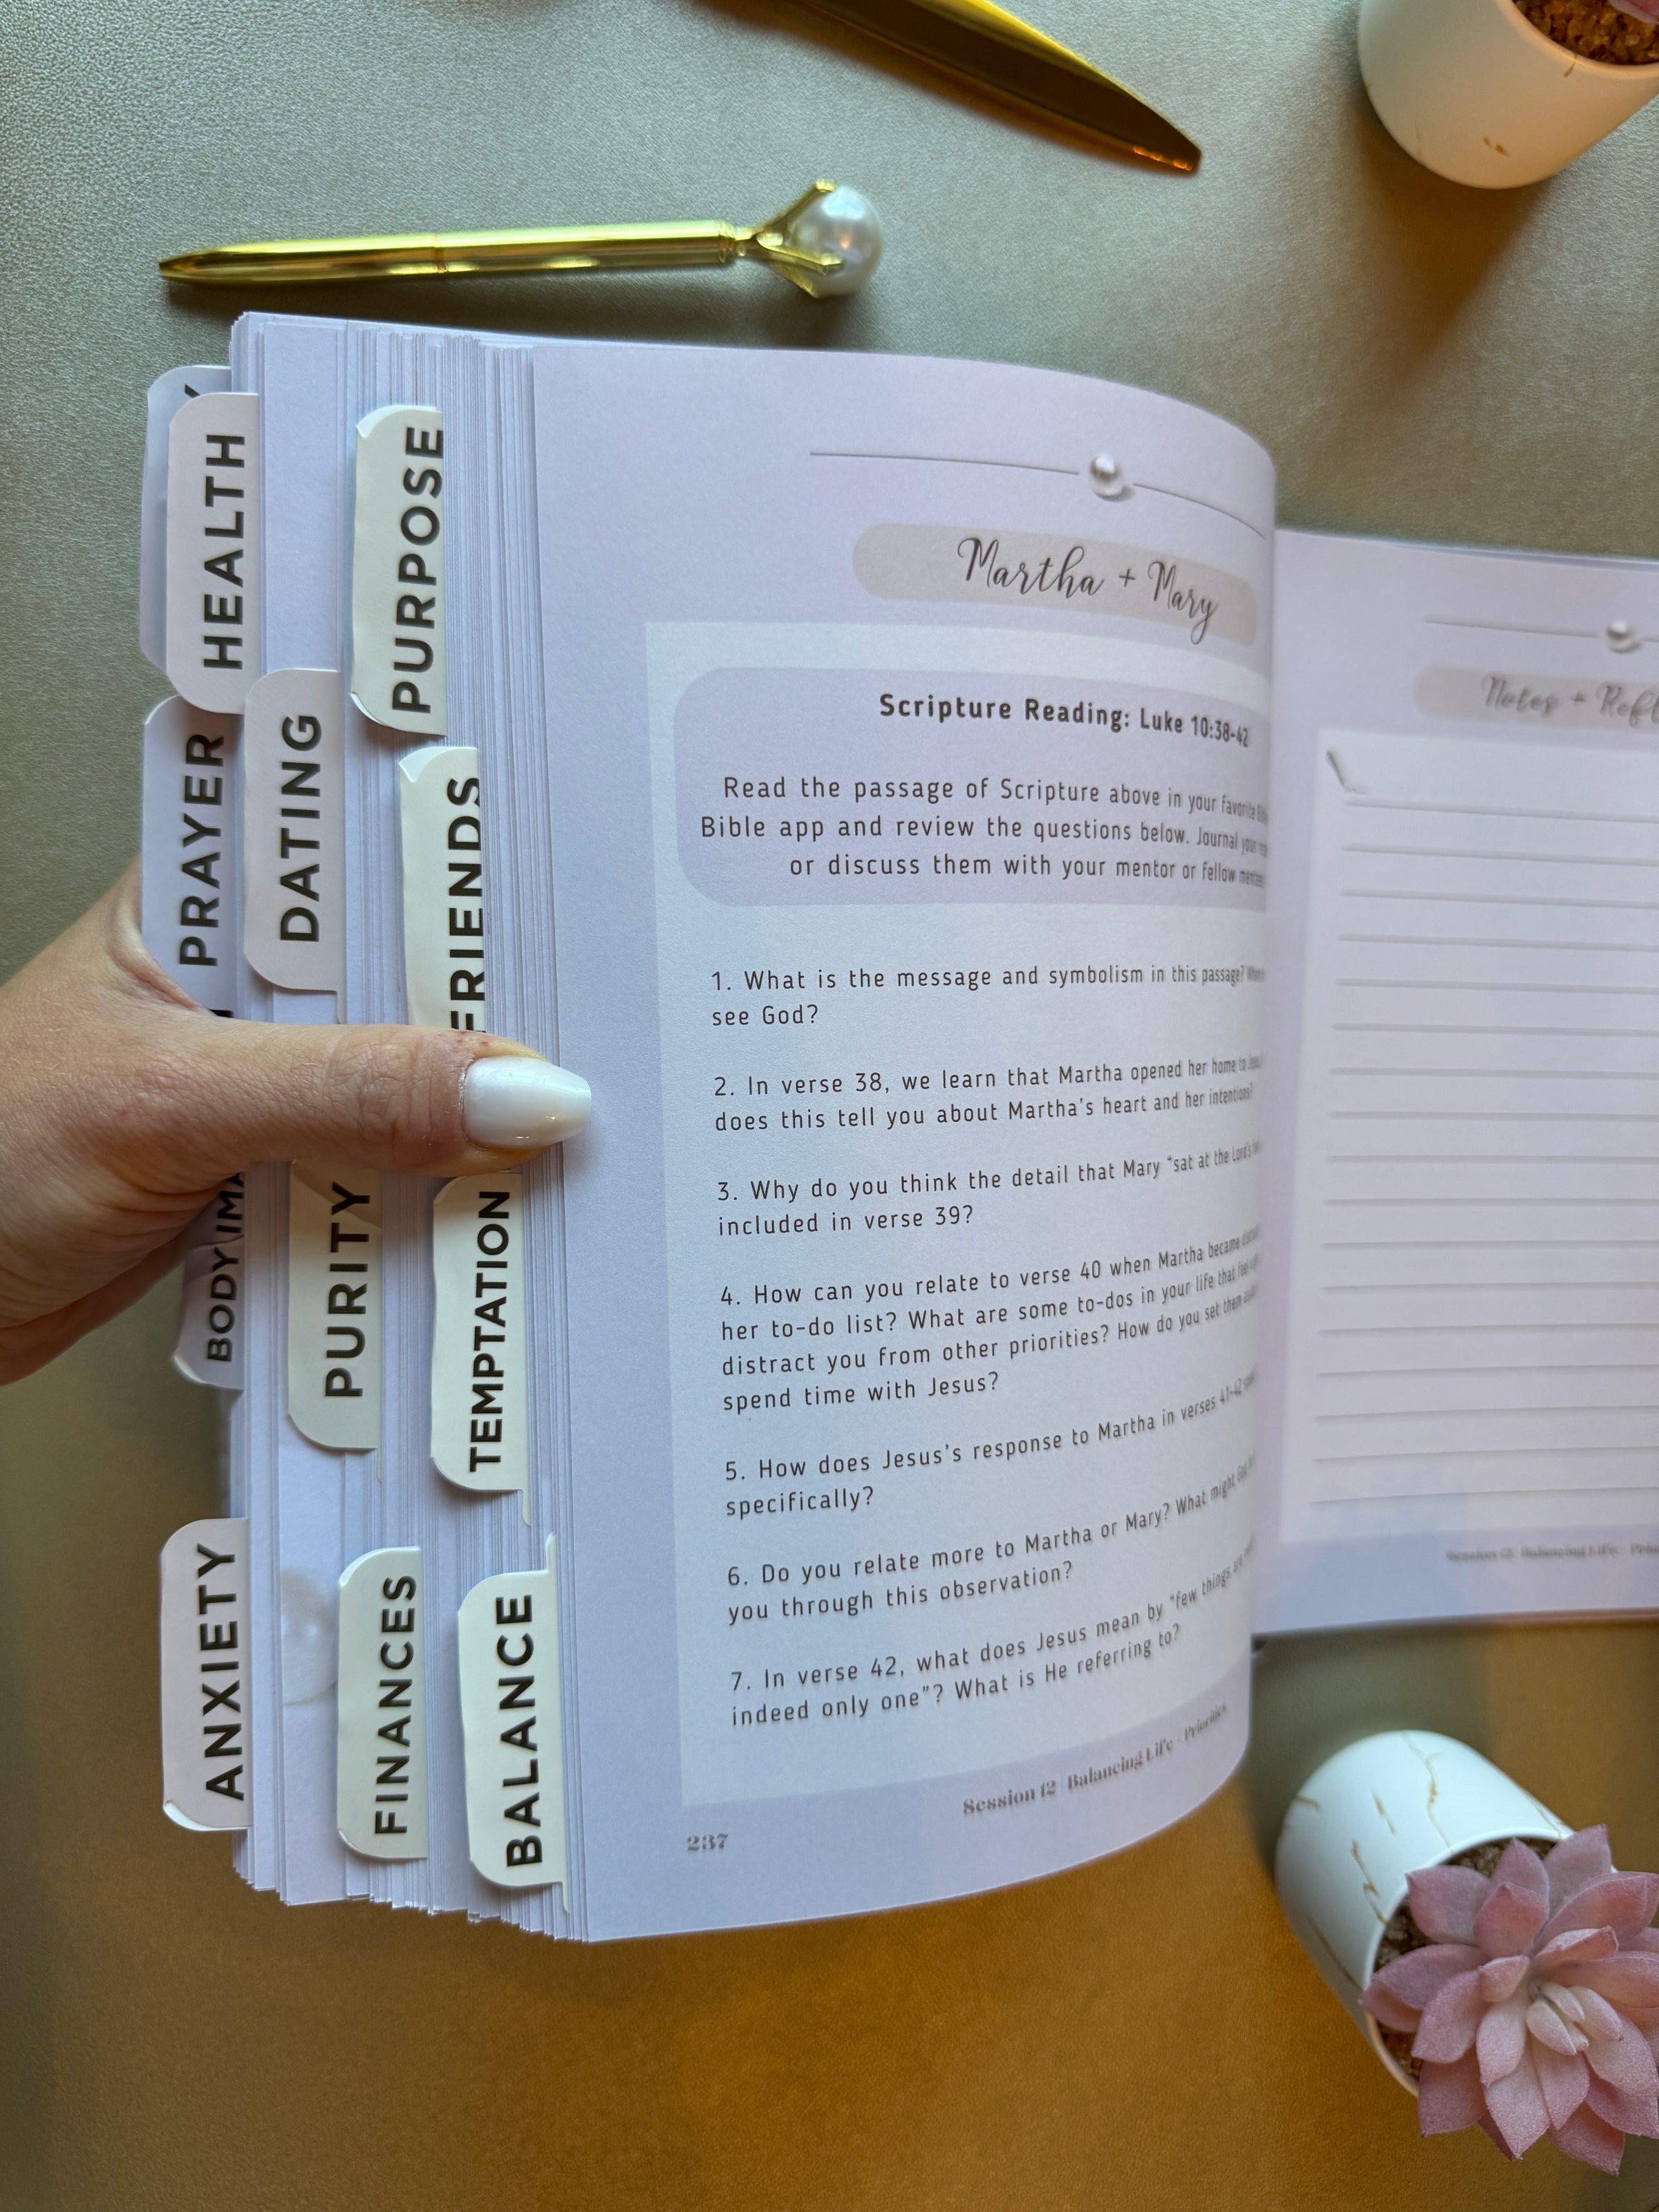 HEALTH
PURPOSE
PRAYER
DATING
FRIENDS
BODY
PURITY
TEMPTATION
ANXIETY
FINANCES
BALANCE
Martha + Mary
Scripture Reading: Luke 10:38-42
Read the passage of Scripture above in your favorite
Bible app and review the questions below. Journal your
or discuss them with your mentor or fellow
1. What is the message and symbolism in this passage?
see God?
2. In verse 38, we learn that Martha opened her home to
does this tell you about Martha's heart and her intentions?
3. Why do you think the detail that Mary "sat at the Lord's
included in verse 39?
4. How can you relate to verse 40 when Martha became
her to-do list? What are some to-dos in your life that feel
distract you from other priorities? How do you set them
spend time with Jesus?
5. How does Jesus's response to Martha in verses 41-42
specifically?
6. Do you relate more to Martha or Mary? What might God
you through this observation?
7. In verse 42, what does Jesus mean by "few things are
indeed only one"? What is He referring to?
Session 12 | Balancing Life - Priorities
237
Notes +
Session 12 | Balancing Life -